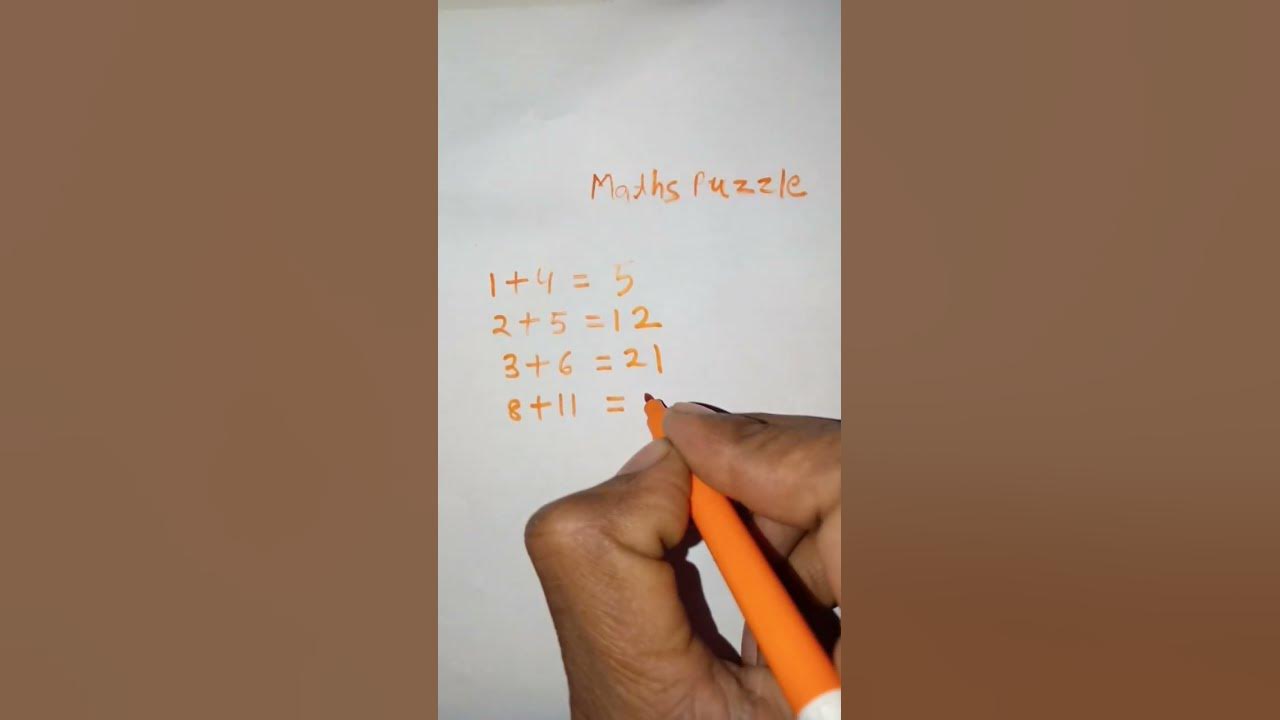 Maths Puzzle
1+4 = 5
2+5 =12
3+6 =21
8+11 =